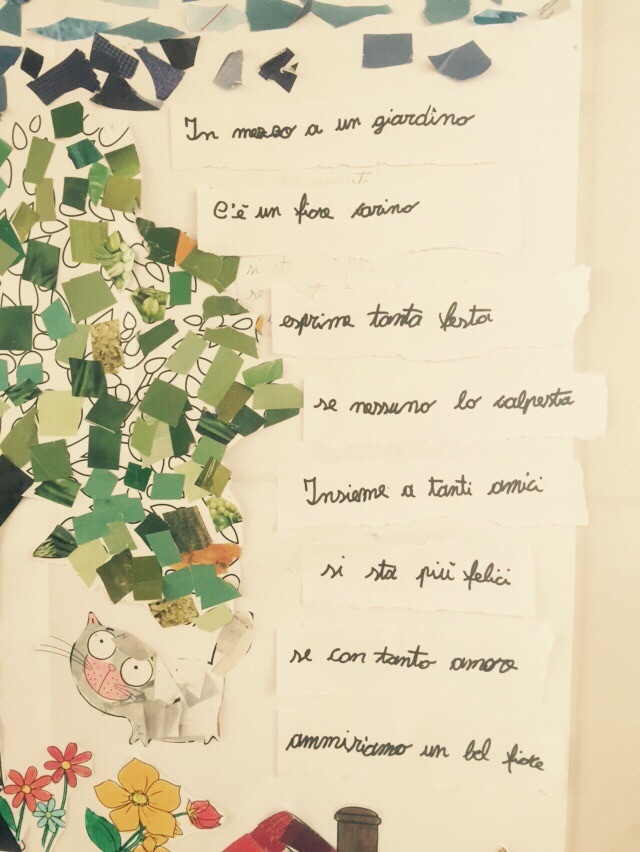 In mezzo a un giardino
C'è un fiore carino
esprime tanta festa
se nessuno lo calpesta
Insieme a tanti amici
si sta più felici
se con tanto amore
ammiriamo un bel fiore